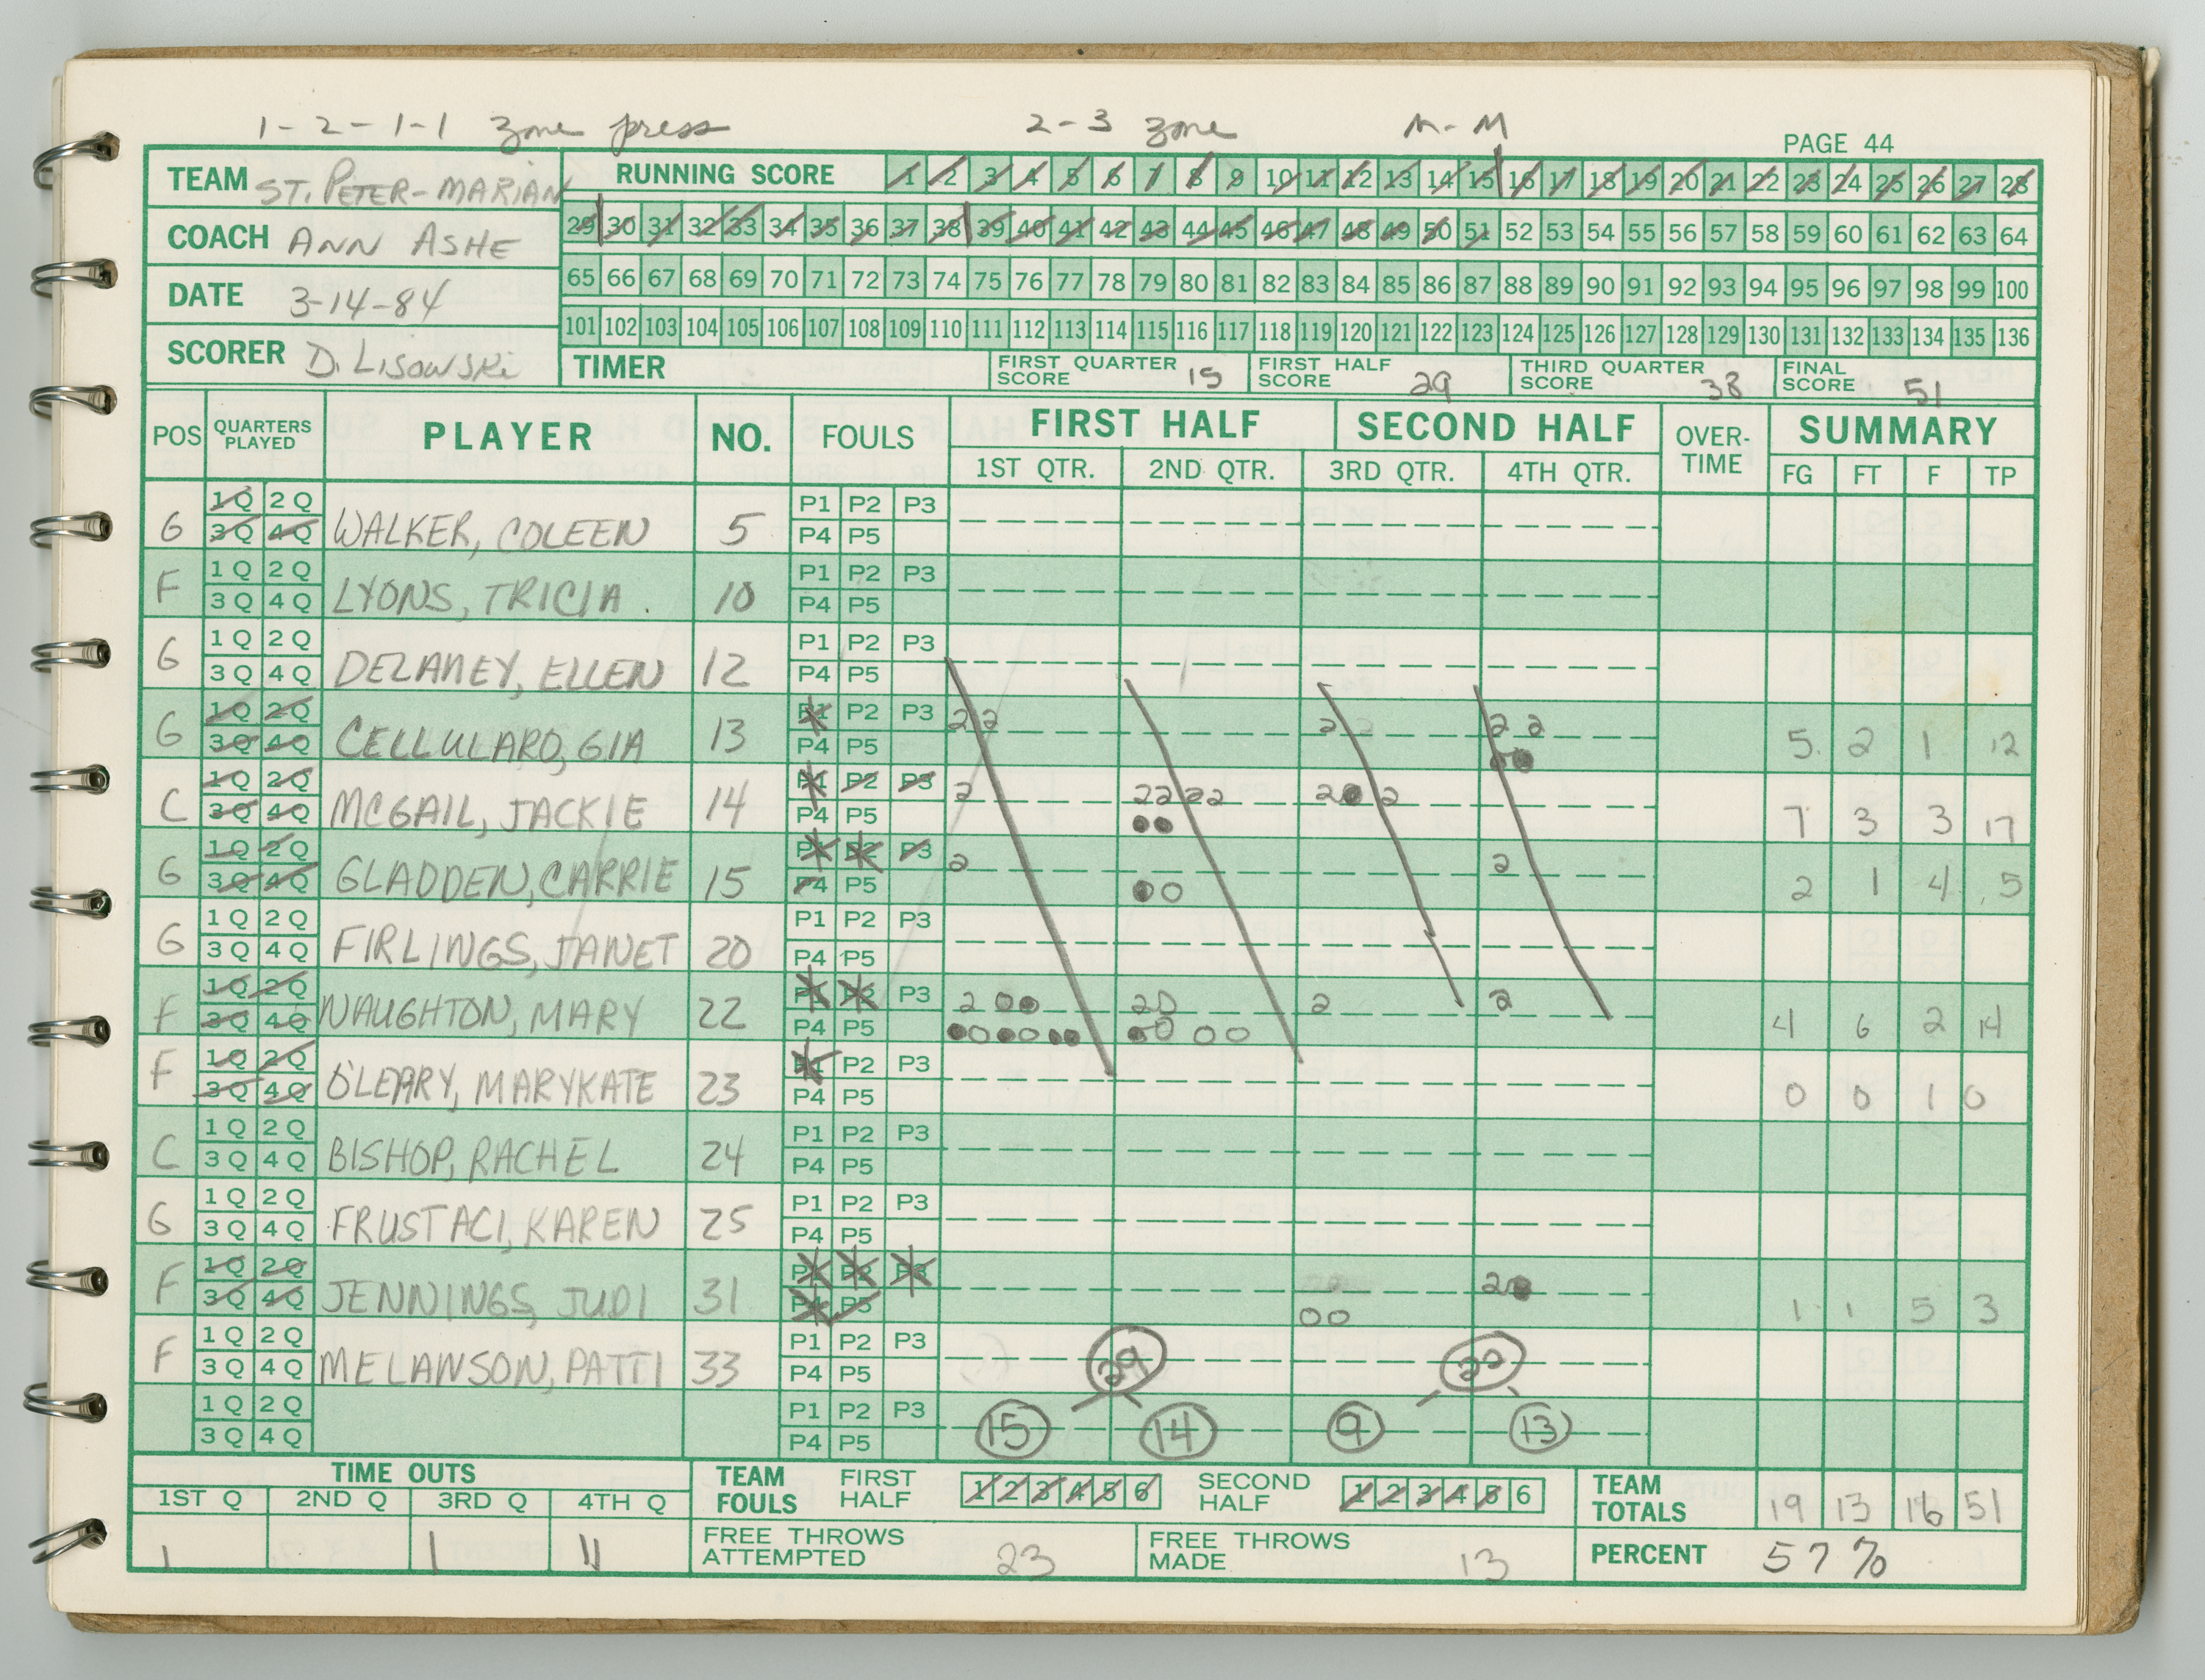 1-2-1-1 Zone press 2-3 Zone M-M
PAGE 44
TEAM ST. PETER-MARIAN
COACH ANN ASHE
DATE 3-14-84
SCORER D. LISOWSKI
RUNNING SCORE 1 2 3 4 5 6 7 8 9 10 11 12 13 14 15 16 17 18 19 20 21 22 23 24 25 26 27 28
29 30 31 32 33 34 35 36 37 38 39 40 41 42 43 44 45 46 47 48 49 50 51 52 53 54 55 56 57 58 59 60 61 62 63 64
65 66 67 68 69 70 71 72 73 74 75 76 77 78 79 80 81 82 83 84 85 86 87 88 89 90 91 92 93 94 95 96 97 98 99 100
101 102 103 104 105 106 107 108 109 110 111 112 113 114 115 116 117 118 119 120 121 122 123 124 125 126 127 128 129 130 131 132 133 134 135 136
TIMER FIRST QUARTER SCORE 15 FIRST HALF SCORE 29 THIRD QUARTER SCORE 38 FINAL SCORE 51
POS QUARTERS PLAYED PLAYER NO. FOULS FIRST HALF SECOND HALF OVER-TIME SUMMARY
1ST QTR. 2ND QTR. 3RD QTR. 4TH QTR. FG FT F TP
1Q 2Q P1 P2 P3
G 3Q 4Q WALKER, COLEEN 5 P4 P5
1Q 2Q P1 P2 P3
F 3Q 4Q LYONS, TRICIA 10 P4 P5
1Q 2Q P1 P2 P3
G 3Q 4Q DELANEY, ELLEN 12 P4 P5
1Q 2Q P1 P2 P3 2 2 2 2 2
G 3Q 4Q CELLULARO, GIA 13 P4 P5 5 2 1 12
1Q 2Q P1 P2 P3 2 2 2 2 2 2 2
C 3Q 4Q MCGAIL, JACKIE 14 P4 P5 7 3 3 17
1Q 2Q P1 P2 P3 2 2
G 3Q 4Q GLADDEN, CARRIE 15 P4 P5 2 1 4 5
1Q 2Q P1 P2 P3
G 3Q 4Q FIRLINGS, JANET 20 P4 P5
1Q 2Q P1 P2 P3 2 2 2 2
F 3Q 4Q NAUGHTON, MARY 22 P4 P5 4 6 2 14
1Q 2Q P1 P2 P3
F 3Q 4Q O'LEARY, MARYKATE 23 P4 P5 0 0 1 0
1Q 2Q P1 P2 P3
C 3Q 4Q BISHOP, RACHEL 24 P4 P5
1Q 2Q P1 P2 P3
G 3Q 4Q FRUSTACI, KAREN 25 P4 P5
1Q 2Q P1 P2 P3 2
F 3Q 4Q JENNINGS, JUDI 31 P4 P5 1 1 5 3
1Q 2Q P1 P2 P3
F 3Q 4Q MELANSON, PATTI 33 P4 P5 29 22
1Q 2Q P1 P2 P3
3Q 4Q P4 P5 15 14 9 13
TIME OUTS TEAM FOULS FIRST HALF 1 2 3 4 5 6 SECOND HALF 1 2 3 4 5 6 TEAM TOTALS 19 13 16 51
1ST Q 2ND Q 3RD Q 4TH Q
1 1 11 FREE THROWS ATTEMPTED 23 FREE THROWS MADE 13 PERCENT 57%